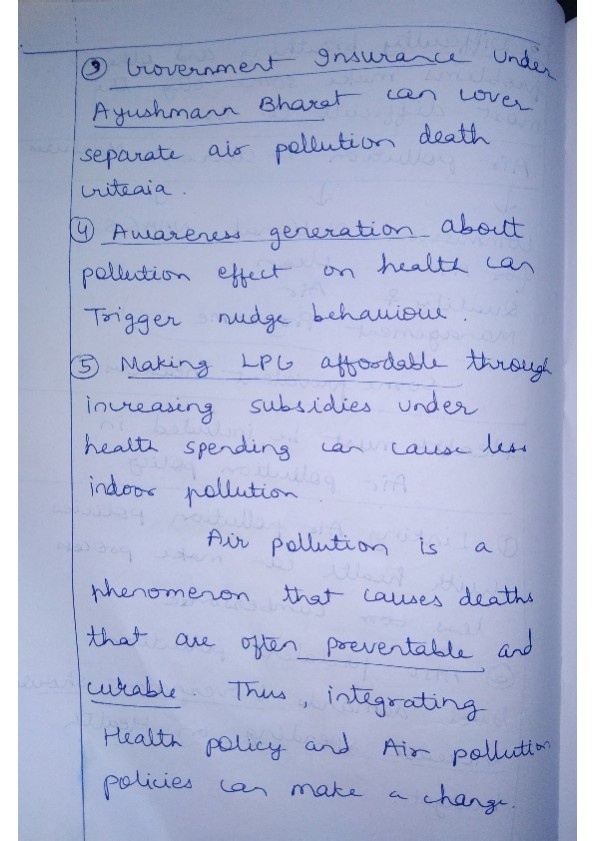 ③ Government Insurance under
Ayushmann Bharat can cover
separate air pollution death
criteria.
④ Awareness generation about
pollution effect on health can
Trigger nudge behaviour.
⑤ Making LPG affordable through
increasing subsidies under
health spending can cause less
indoor pollution
Air pollution is a
phenomenon that causes deaths
that are often preventable and
curable. Thus, integrating
Health policy and Air pollution
policies can make a change.